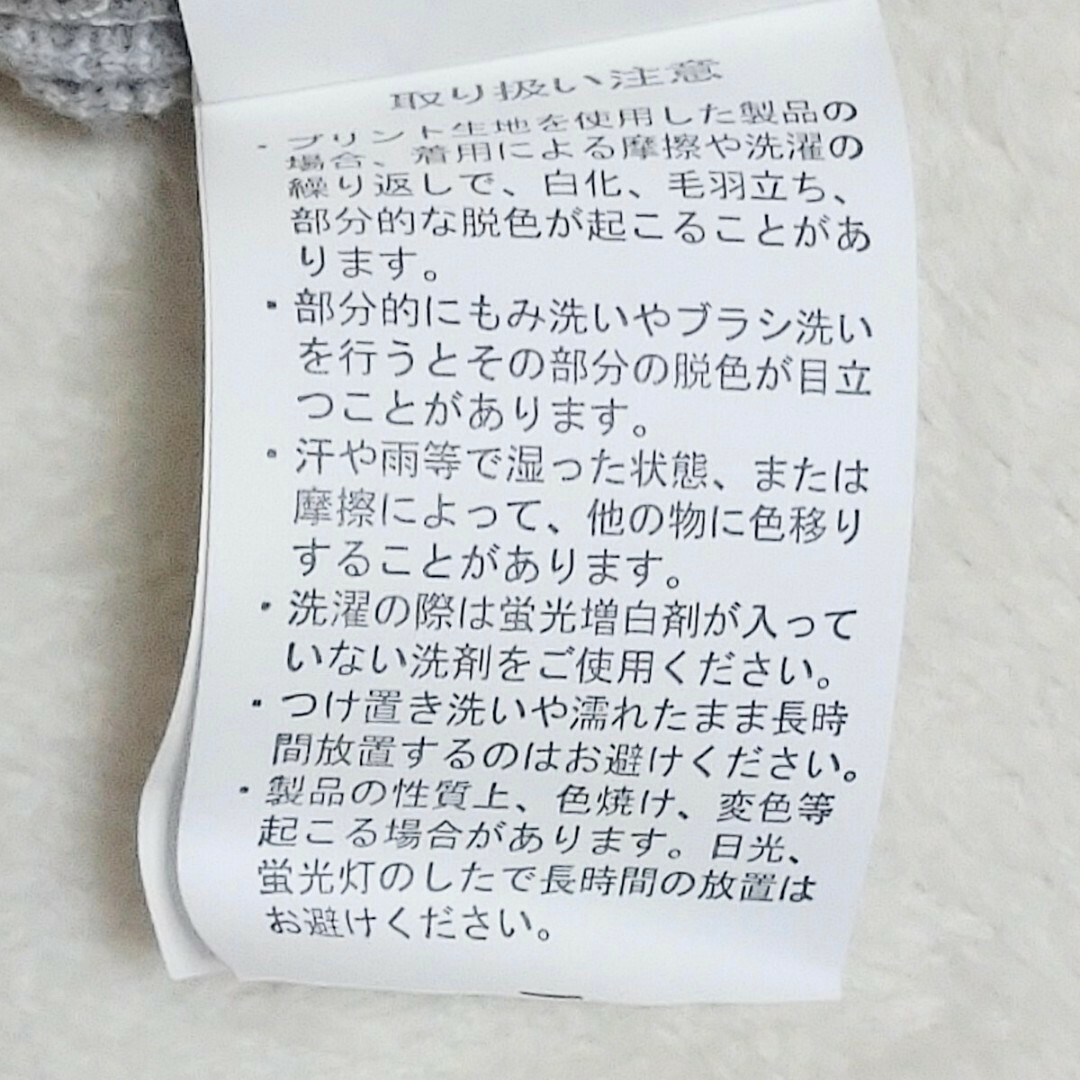 取り扱い注意
・プリント生地を使用した製品の
場合、着用による摩擦や洗濯の
繰り返しで、白化、毛羽立ち、
部分的な脱色が起こることがあ
ります。
・部分的にもみ洗いやブラシ洗い
を行うとその部分の脱色が目立
つことがあります。
・汗や雨等で湿った状態、または
摩擦によって、他の物に色移り
することがあります。
・洗濯の際は蛍光増白剤が入って
いない洗剤をご使用ください。
・つけ置き洗いや濡れたまま長時
間放置するのはお避けください。
・製品の性質上、色焼け、変色等
起こる場合があります。日光、
蛍光灯のしたで長時間の放置は
お避けください。